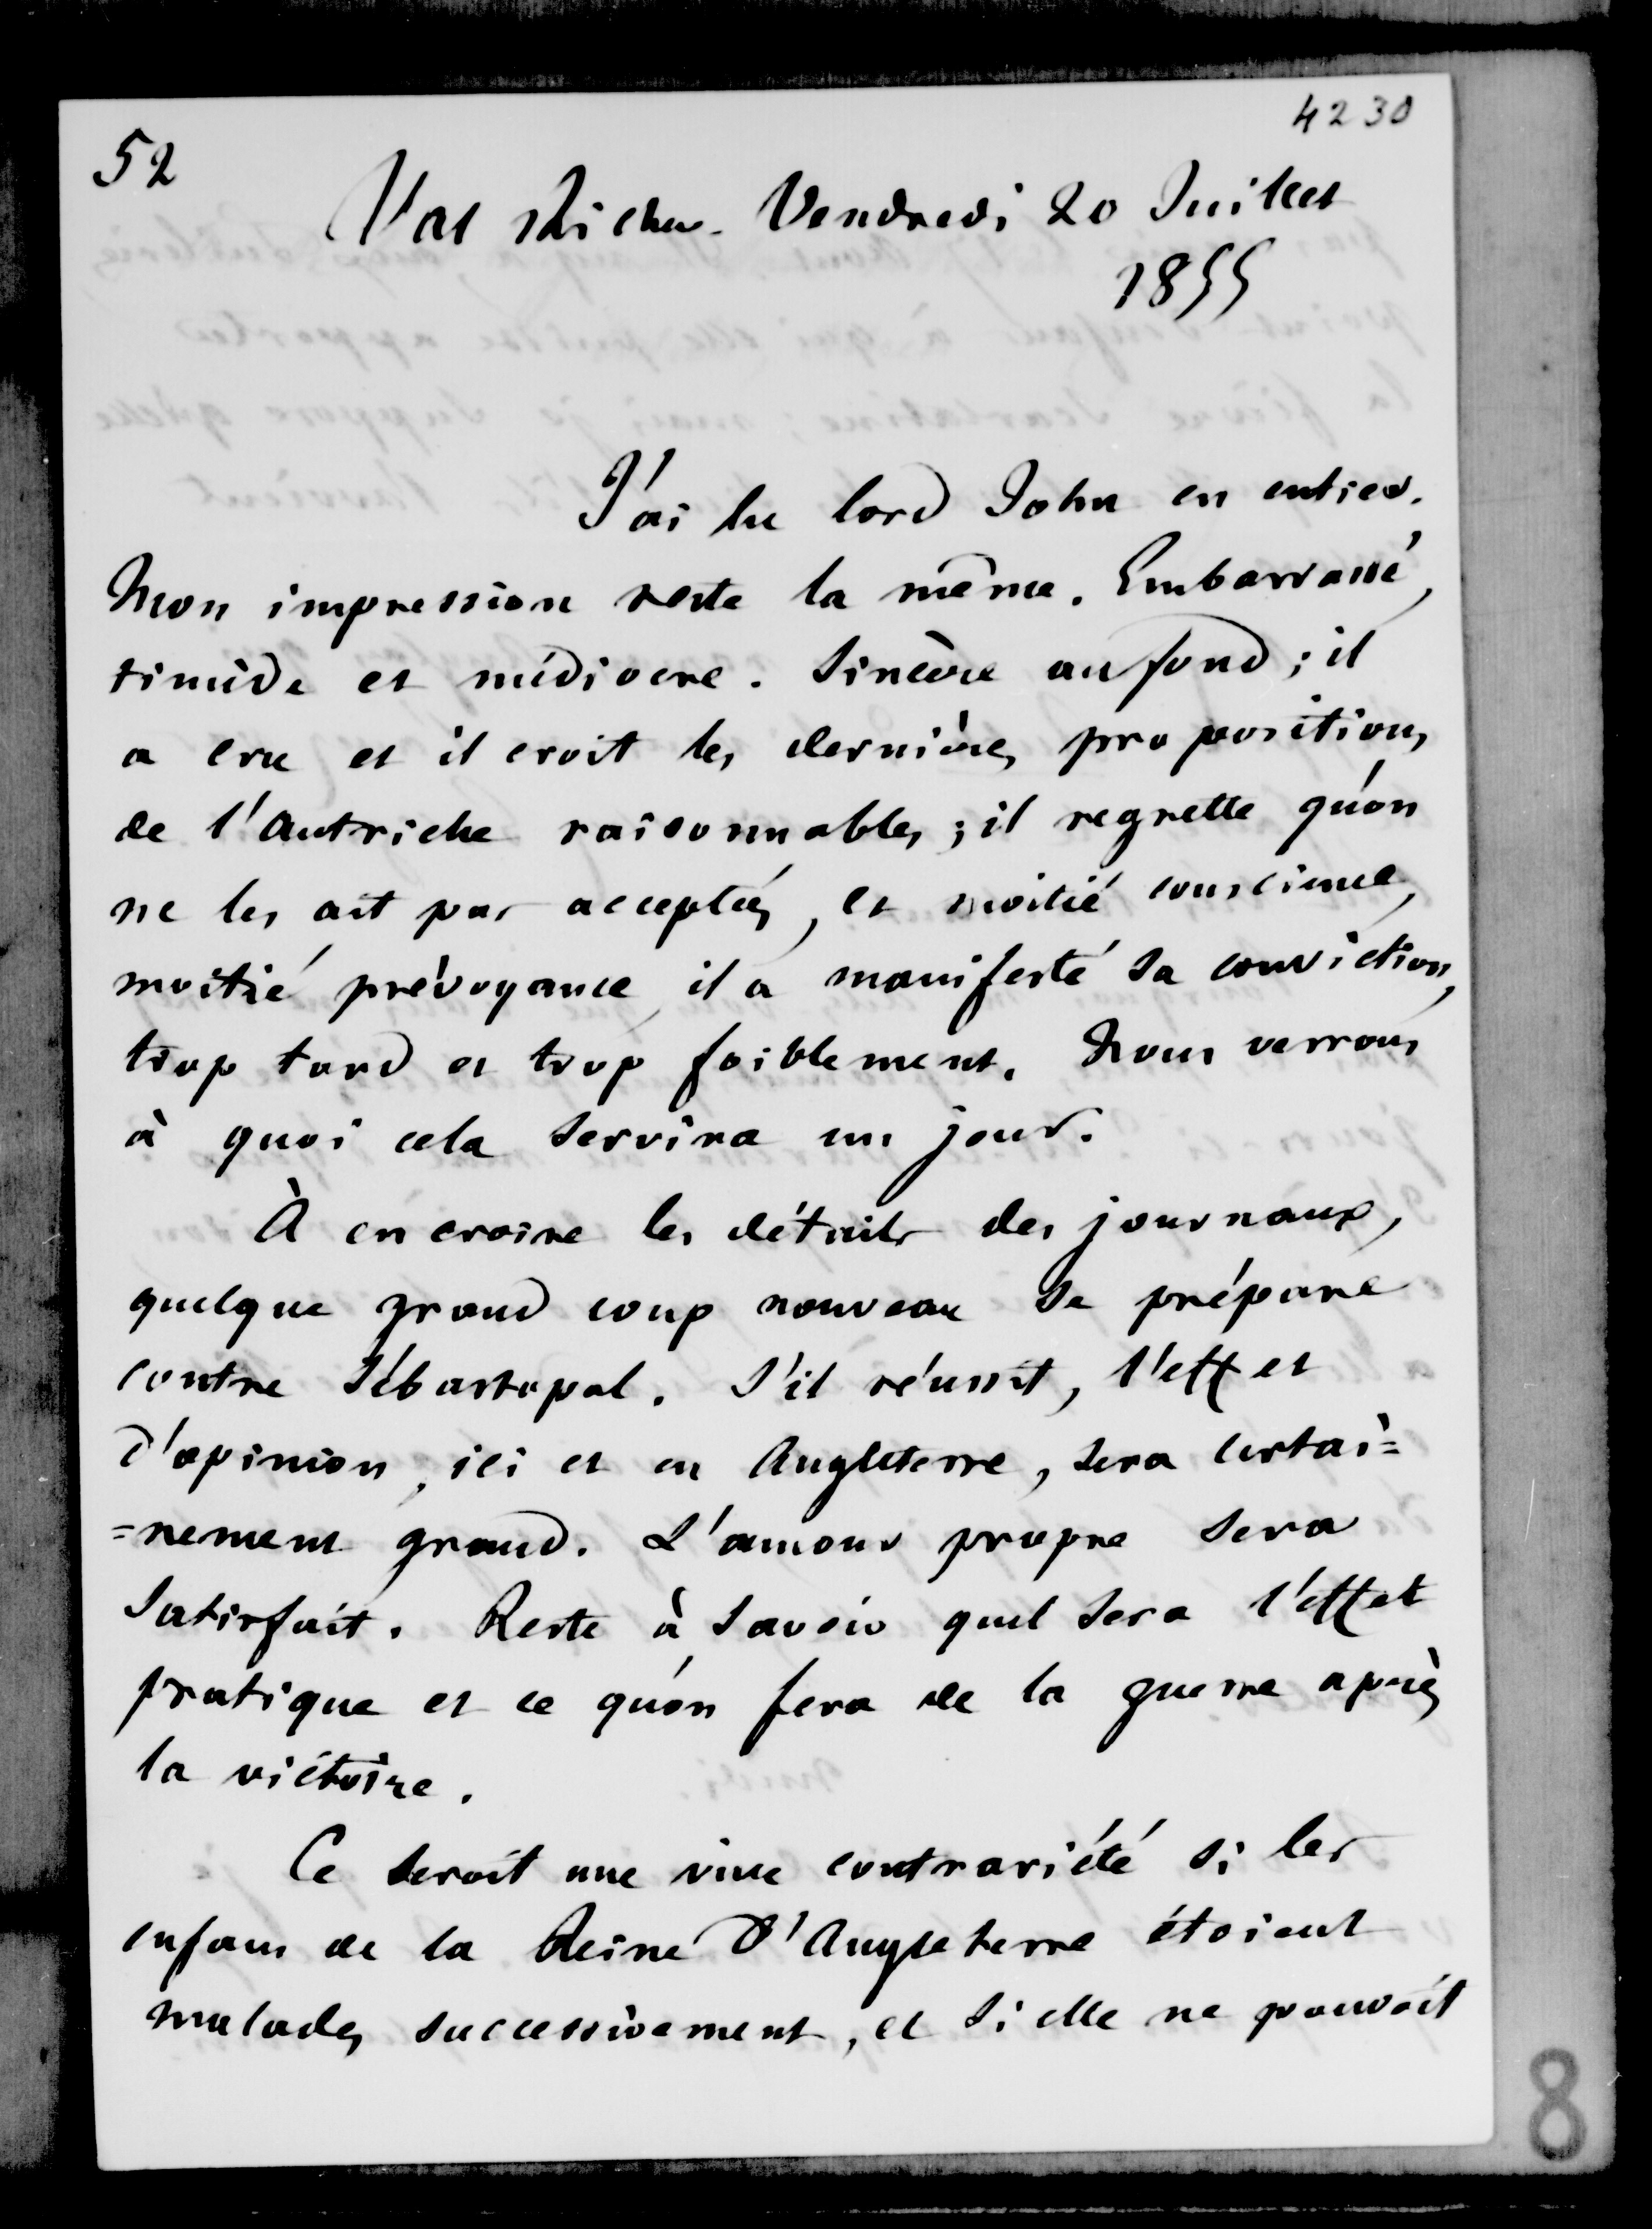 4230
52
Val Richer. Vendredi 20 Juillet
1855
J'ai lu lord John en entier.
Mon impression reste la même. Embarrassé,
timide et médiocre. Sincère au fond ; il
a cru et il croit les dernières propositions
de l'Autriche raisonnables ; il regrette qu'on
ne les ait pas acceptées, et moitié conscience,
moitié prévoyance, il a manifesté sa conviction,
trop tard et trop foiblement. Nous verrons
à quoi cela servira un jour.
À en croire les détails des journaux,
quelque grand coup nouveau se prépare
contre Sébastopol. S'il réussit, l'effet
d'opinion, ici et en Angleterre, sera certai=
=nement grand. L'amour propre sera
satisfait. Reste à savoir quel sera l'effet
pratique et ce qu'on fera de la guerre après
la victoire.
Ce seroit une vive contrariété si les
enfans de la Reine d'Angleterre étoient
malades successivement, et si elle ne pouvoit
8